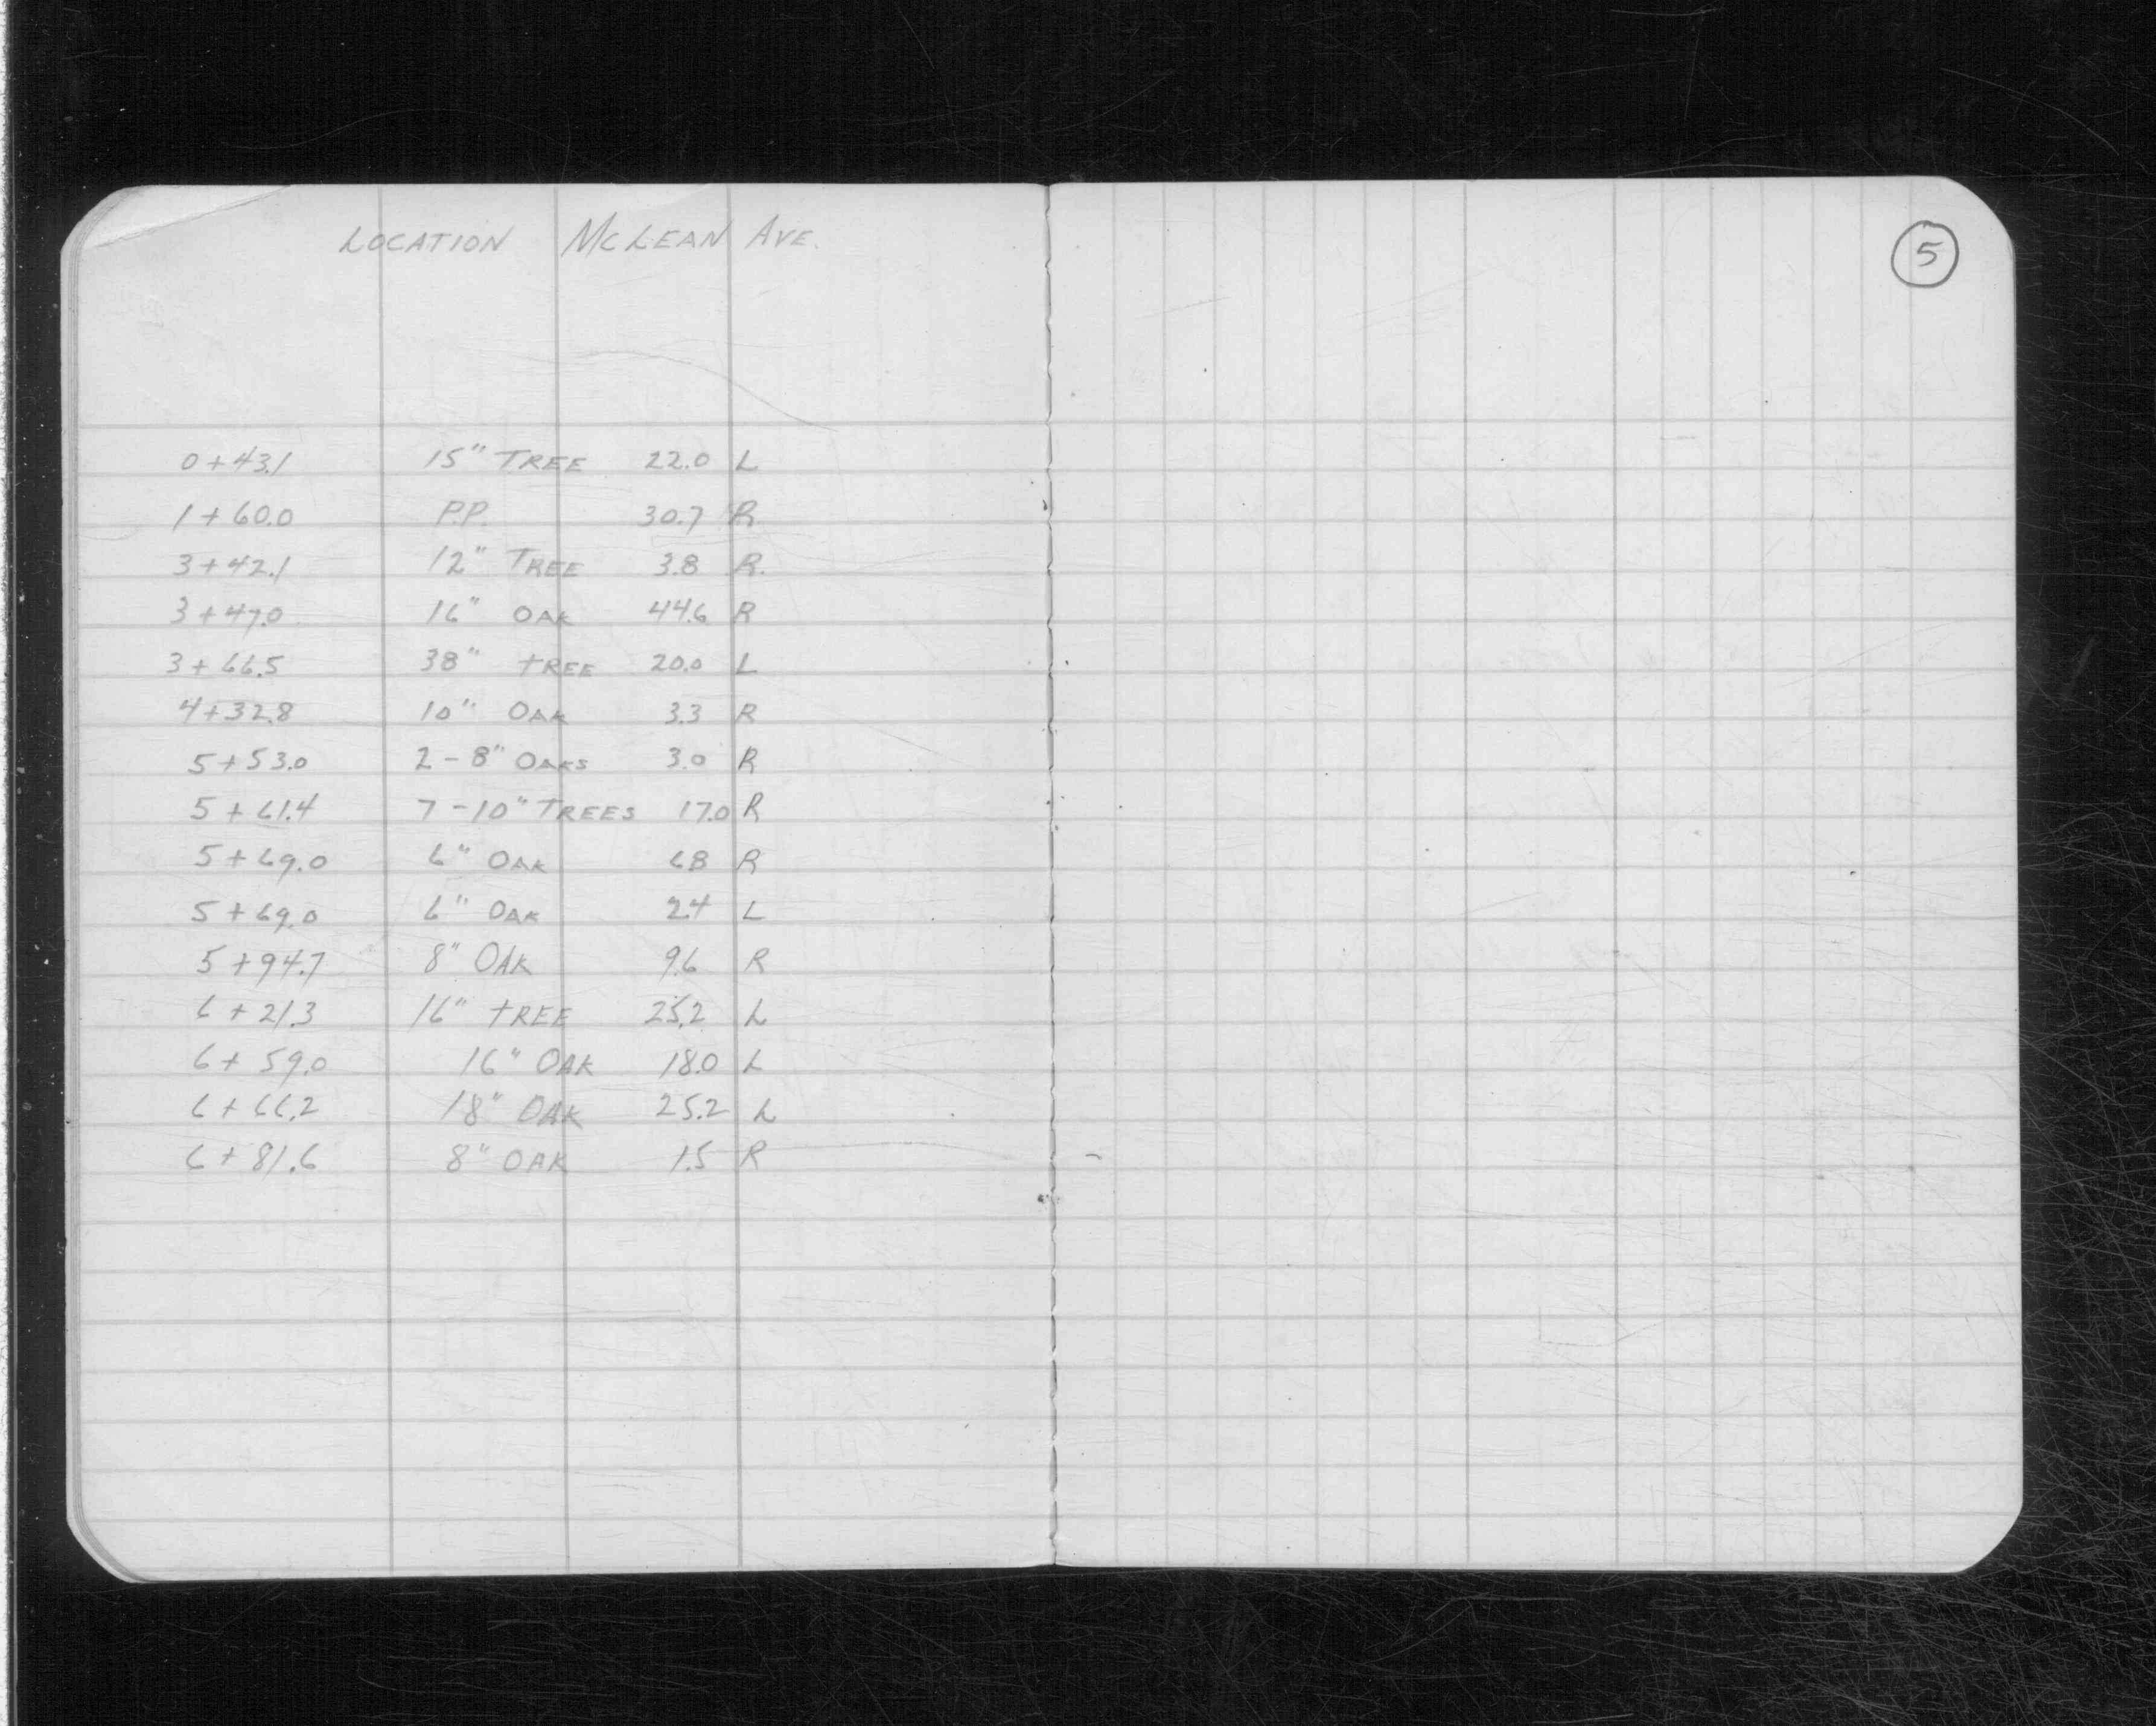 LOCATION McLEAN AVE.
5
0+43.1 15" TREE 22.0 L
1+60.0 P.P. 30.7 R
3+42.1 12" TREE 3.8 R.
3+47.0 16" OAK 44.6 R
3+66.5 38" TREE 20.0 L
4+32.8 10" OAK 3.3 R
5+53.0 2-8" OAKS 3.0 R
5+61.4 7-10" TREES 17.0 R
5+69.0 6" OAK 6.8 R
5+69.0 6" OAK 2.4 L
5+94.7 8" OAK 9.6 R
6+21.3 16" TREE 25.2 L
6+59.0 16" OAK 18.0 L
6+66.2 18" OAK 25.2 L
6+81.6 8" OAK 1.5 R